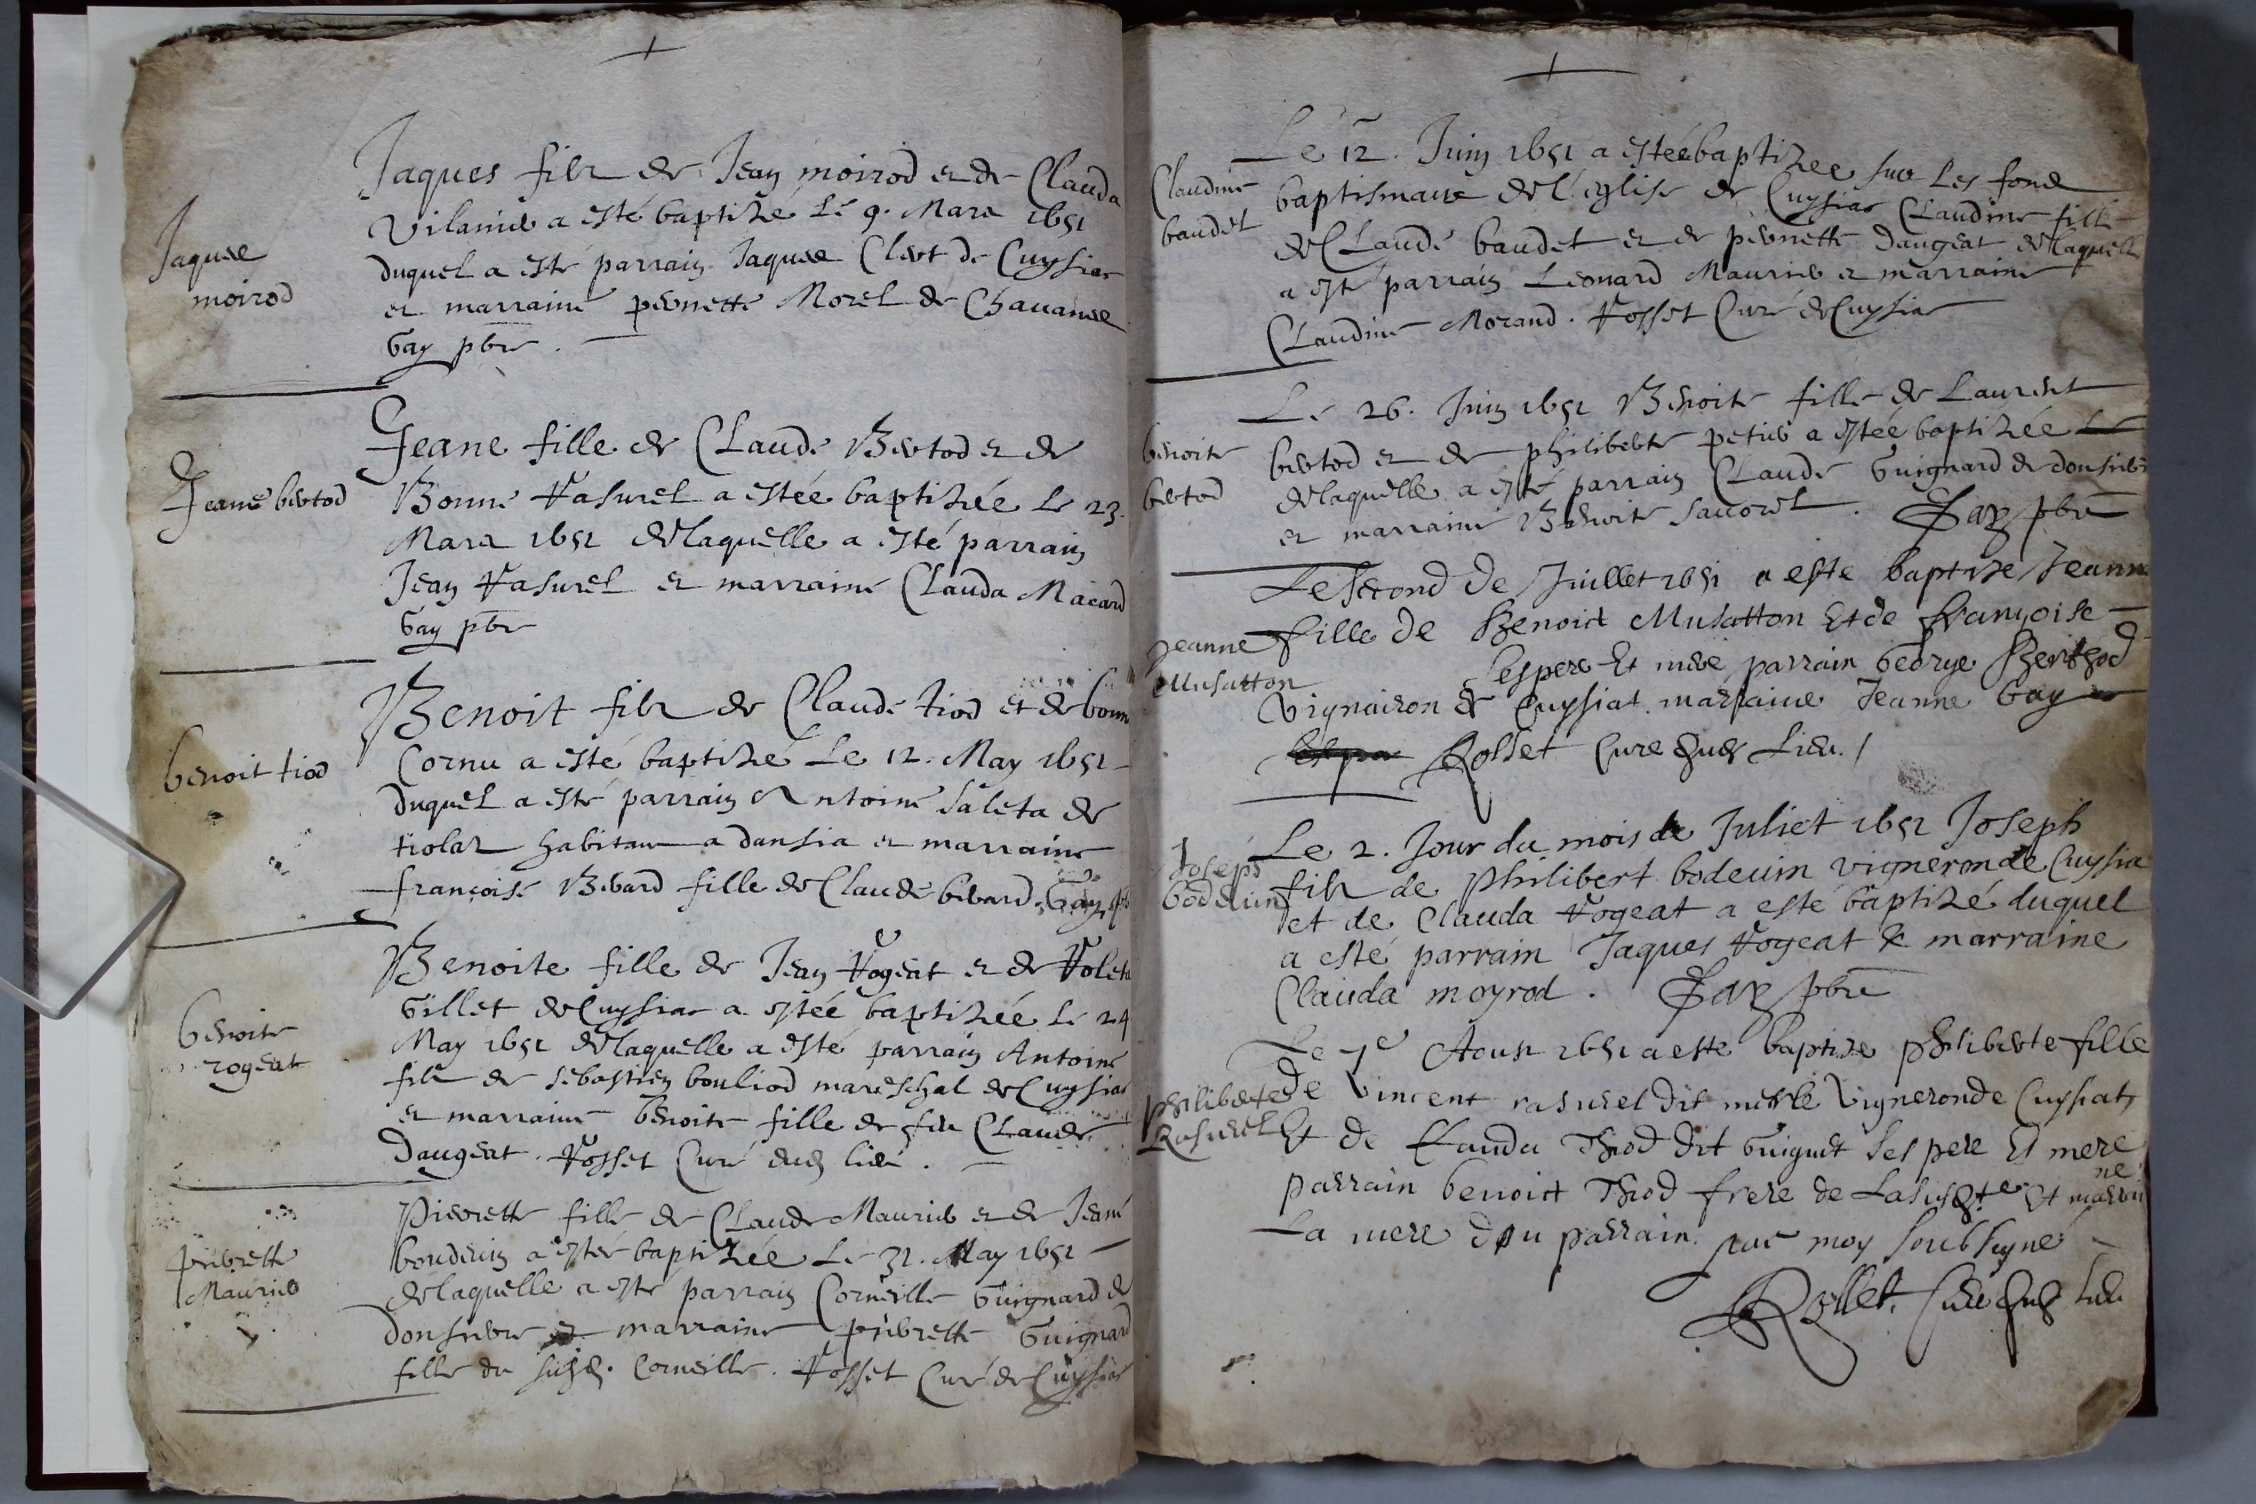 Jaques
moirod
Jaques filz de Jean moirod et de Clauda
Vilanier a esté baptizé Le 9. Mars 1651
duquel a esté parrain Jaques Clert de Cuysiat
et marraine pernette Morel de Chauanne
Gay pbre.
Jeane bertod
Jeane fille de Claude Bertod et de
Bonne Rasurel a estée baptizée Le 23.
Mars 1651 de laquelle a esté parrain
Jean Rasurel et marraine Clauda Macard
Gay pbre
benoit tiod
Benoit filz de Claude tiod et de bonne
Cornu a esté baptizé Le 12. May 1651
duquel a esté parrain Antoine Saleta de
tiolaz habitant a dansia et marraine
françoise Berard fille de Claude berard. Gay pb
benoite
rogeat
Benoite fille de Jean Rogeat et de
Gillet de Cuysiat a estée baptizée Le 24
May 1651 de laquelle a esté parrain Antoine
filz de sebastien bouliod mareschal de Cuysiat
et marraine benoite fille de feu Claude
Daugeat. Rosset Curé dud lieu.
pierrette
Maurier
Pierrette fille de Claude Maurier et de Jeane
bouderin a estée baptizée Le 31. May 1651
de laquelle a esté parrain Corneille Guignard de
donsurre et marraine pierrette Guignard
fille du susd. Corneille. Rosset Curé de Cuysiat
Claudine
baudet
Le 12. Juin 1651 a estée baptizee sur Les fonds
baptismaux de l'eglise de Cuysiat Claudine fille
de Claude baudet et de pernette Daugeat de laquelle
a esté parrain Leonard Maurier et marraine
Claudine Morand. Rosset Curé de Cuysiat
benoite
bertod
Le 26. Juin 1651 Benoite fille de Laurent
bertod et de philiberte petier a estée baptizée
de laquelle a esté parrain Claude Guignard de donsurre
et marraine Benoite Sauorel. Gay pbre
Jeanne
Musatton
Le Second de Juillet 1651 a este baptize Jeanne
fille de Benoict Musatton Et de françoise
ses pere Et mere parrain George Berthod
vignairon de Cuysiat marraine Jeanne Gay
Rosset Cure dud Lieu. /
Joseph
boderiun
Le 2. Jour du mois de Juliet 1651 Joseph
filz de Philibert bodeuin vigneron de Cuysia
et de Clauda Rogeat a esté baptizé duquel
a esté parrain Jaques Rogeat & marraine
Clauda moyrod. Gay pbre
philiberte
Rasurel
Le 7e Aoust 1651 a este baptize philiberte fille
de Vincent rasurel dit mesle Vigneron de Cuysiat
Et de Clauda Thiod dit Guignet ses pere Et mere
parrain benoict Thiod frere de La susd.te Et marraine
La mere dou parrain. par moy soubsigné
Rosset. Cure dud Lieu